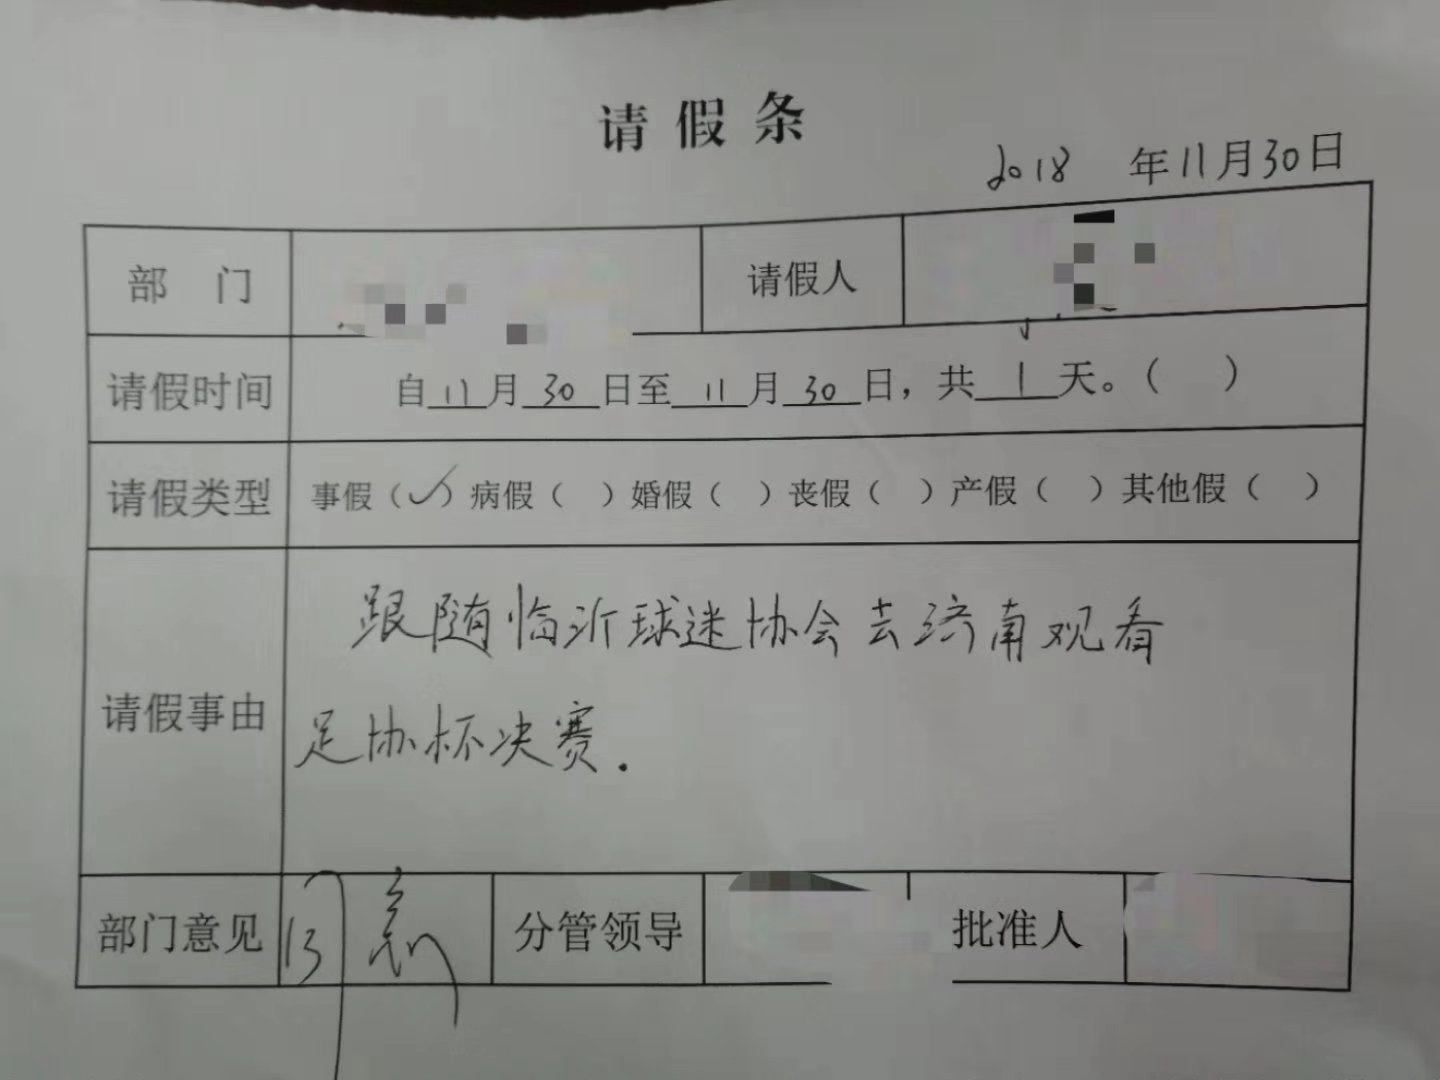 请假条
2018 年11月30日
部 门 请假人
请假时间 自11月30日至11月30日，共1天。（ ）
请假类型 事假（✓）病假（ ）婚假（ ）丧假（ ）产假（ ）其他假（ ）
请假事由 跟随临沂球迷协会去济南观看
足协杯决赛.
部门意见 同意 分管领导 批准人